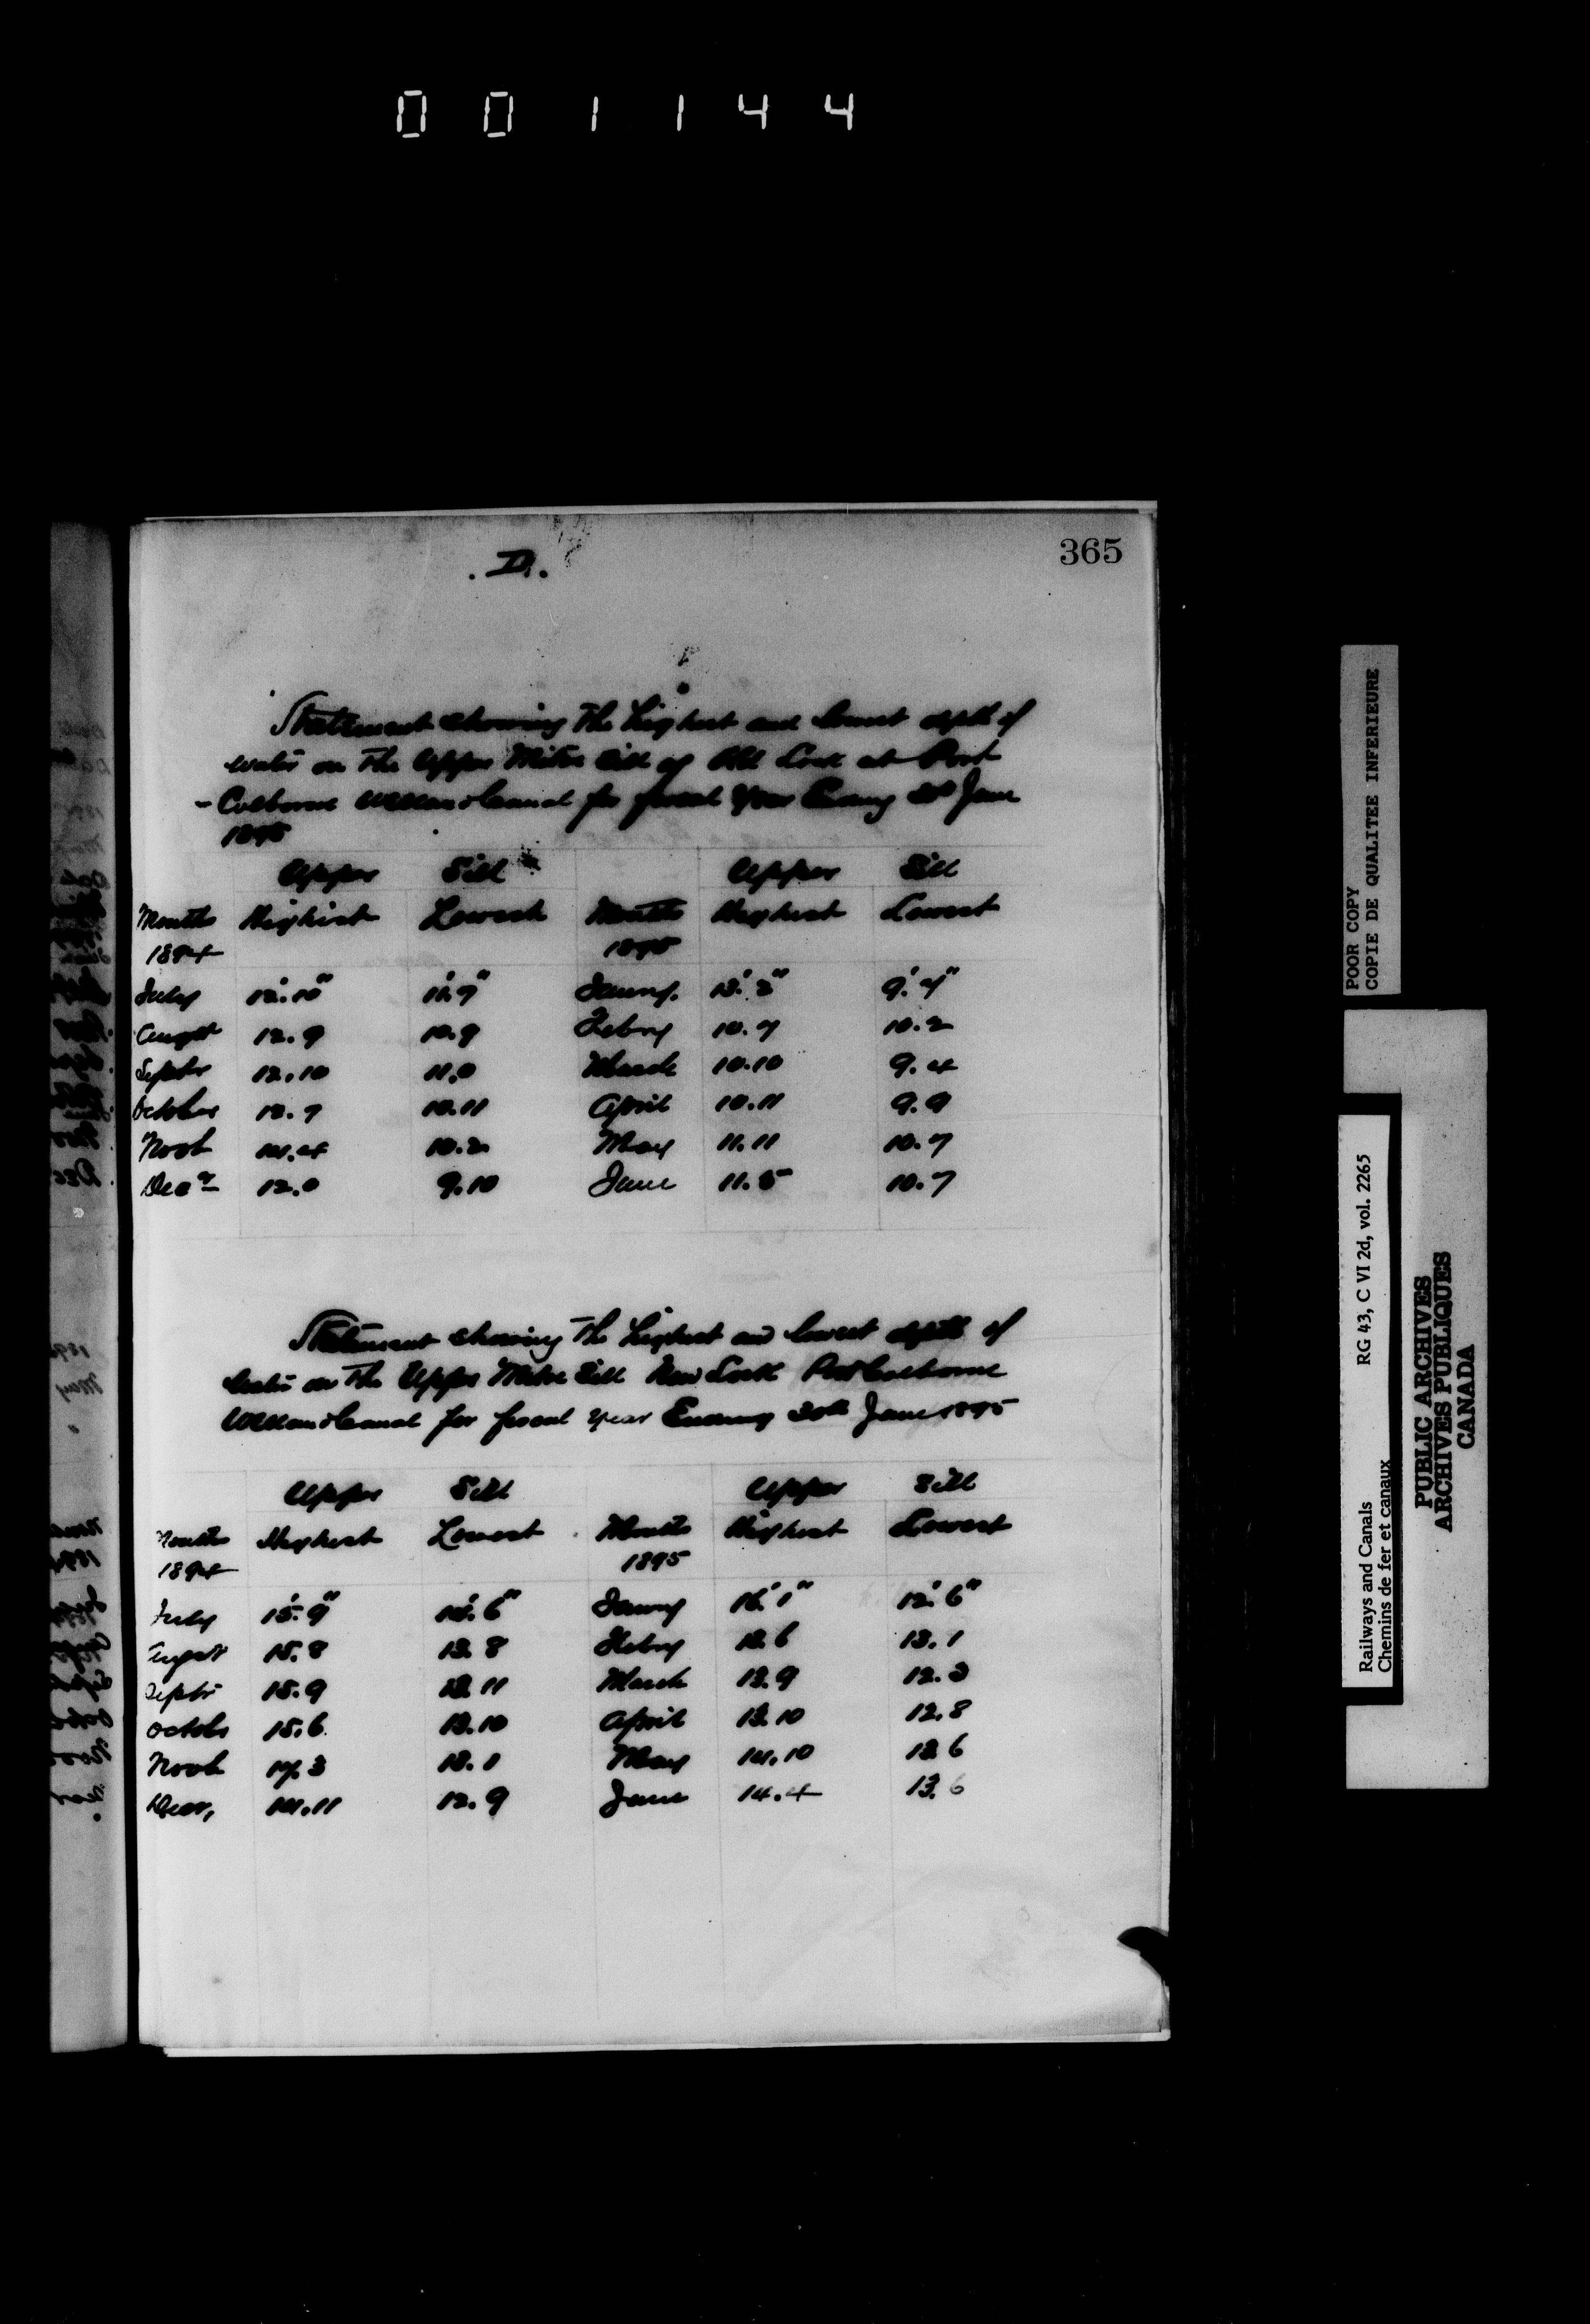 001144
365
. D .
Statement showing The highest and lowest depth of
water on The Upper Mitre Sill of Old Lock at Port
- Colborne Welland Canal for fiscal Year Ending 30th June
1895
Upper Sill Upper Sill
Months Highest Lowest Months Highest Lowest
1894 1895
July 12'.10" 11'.9" Janry. 13'.2"
August 12.9 10.9 Febry 10.7 10.2
Septbr 12.10 11.0 March 10.10 9.4
October 12.7 10.11 April 10.11 9.9
Novb 14.4 10.2 May 11.11 10.7
Decr 12.0 9.10 June 11.5 10.7
Statement showing The highest and lowest depth of
water on The Upper Mitre Sill New Lock Port Colborne
Welland Canal for fiscal year Ending 30th June 1895
Upper Sill Upper Sill
Months Highest Lowest Months Highest Lowest
1894 1895
July 15'.9" Janry 16'.1" 12'.6"
August 15.8 13.8 Febry 13.6 13.1
Septbr 15.9 13.11 March 13.9 12.3
Octobr 15.6 13.10 April 13.10 12.8
Novb 17.3 13.1 May 14.10 13.6
Decr, 14.11 12.9 June 14.4 13.6
POOR COPY
COPIE DE QUALITEE INFERIEURE
Railways and Canals RG 43, C VI 2d, vol. 2265
Chemins de fer et canaux
PUBLIC ARCHIVES
ARCHIVES PUBLIQUES
CANADA